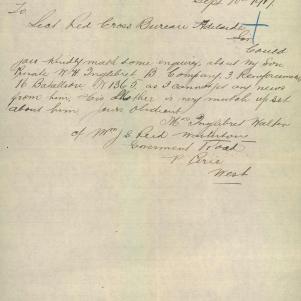 Sept 10th 1917
To
Sect Red Cross Bureau Adelaide
Sir
Could
you kindly make some enquiry about my Son
Private W H Inglebret B Company 3 Reinforcements
16 Batallion N 1365 as I cannot get any news
from him, his Mother is very much upset
about him yours Obedient
Mrs Inglebret Walter
of Mrs J E Reid
Goverment Road
P Pirie
West